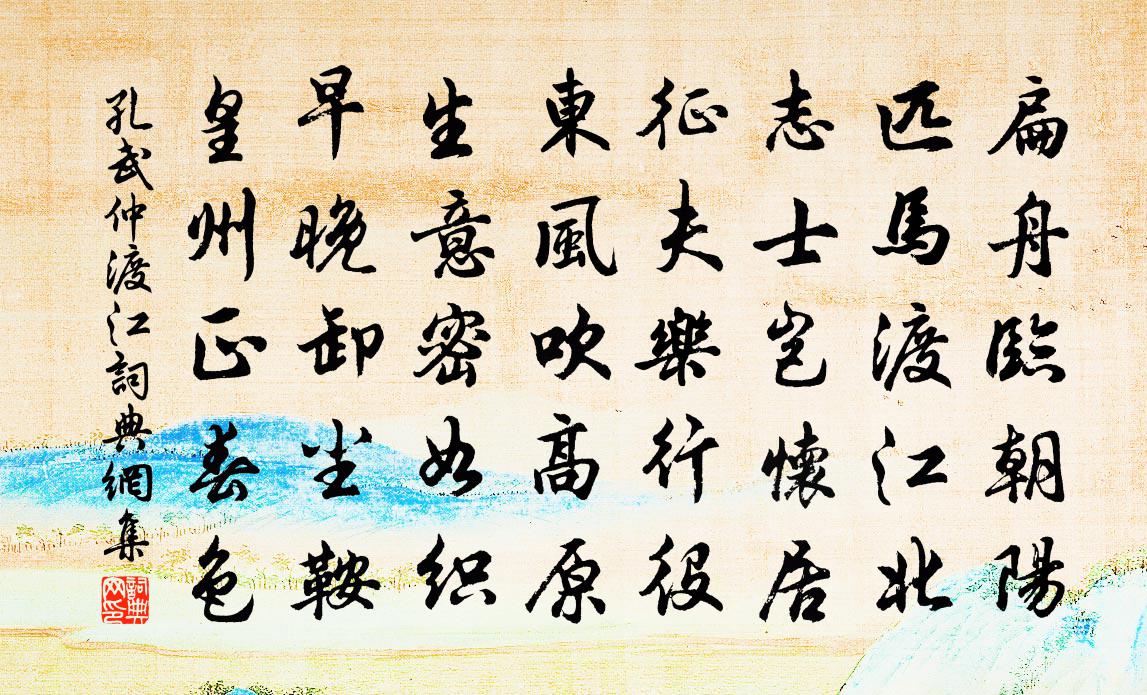 扁舟臨朝陽
匹馬渡江北
志士豈懷居
征夫樂行役
東風吹高原
生意密如织
早晚卸尘鞍
皇州正春色
孔武仲渡江詞典網集
詞典